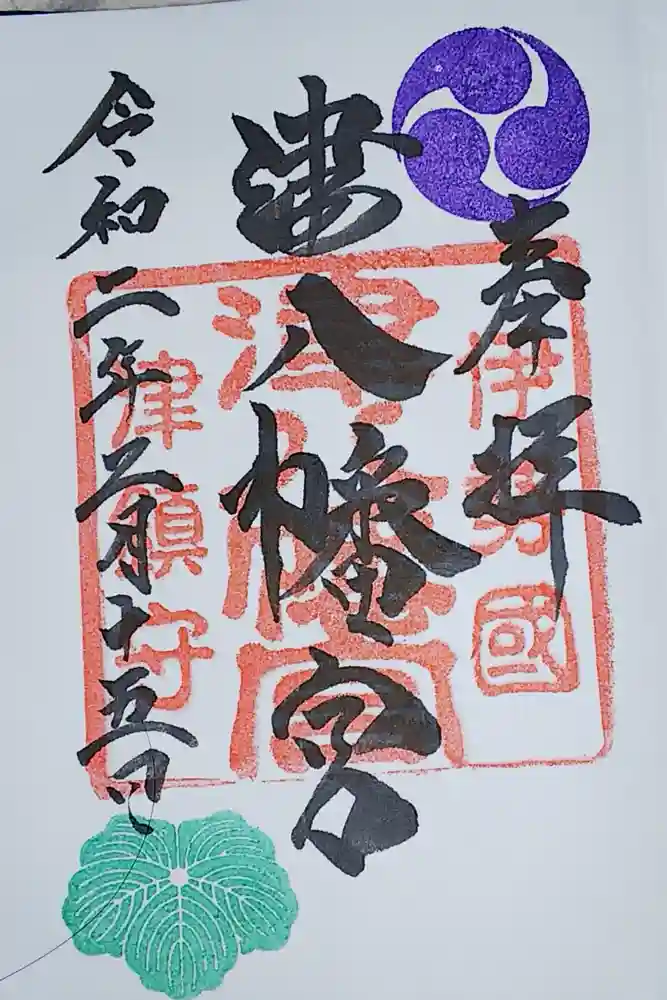 奉拝
津八幡宮
令和二年二月十五日
伊勢國
津八幡宮
津鎮守